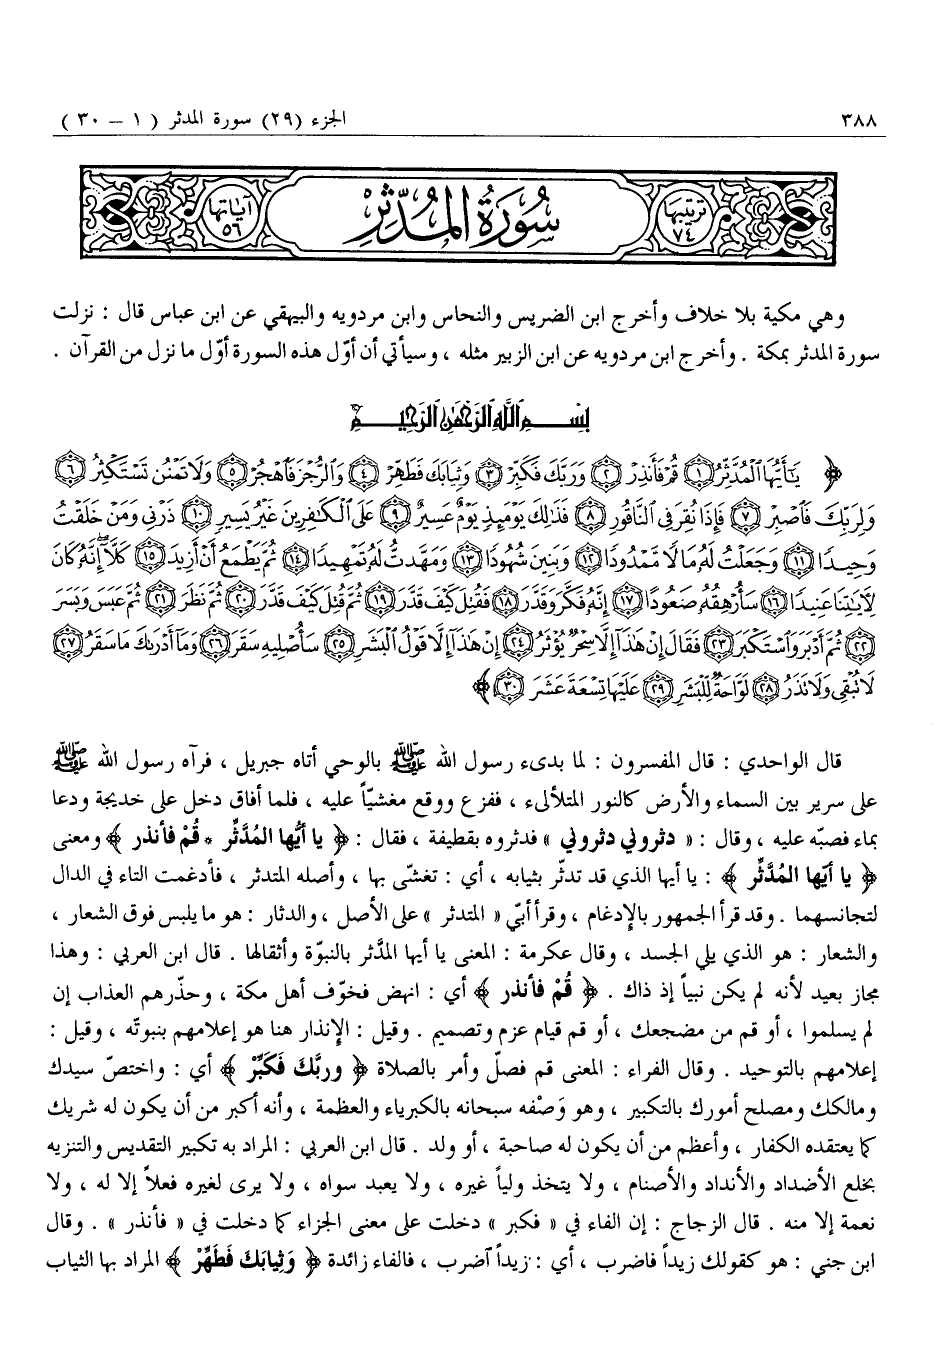 ٣٨٨
الجزء (٢٩) سورة المدثر ( ١ – ٣٠ )
ترتيبها ٧٤
سُورَةُ المُدَّثِّرِ
آياتها ٥٦
وهي مكية بلا خلاف وأخرج ابن الضريس والنحاس وابن مردويه والبيهقي عن ابن عباس قال : نزلت
سورة المدثر بمكة . وأخرج ابن مردويه عن ابن الزبير مثله ، وسيأتي أن أوّل هذه السورة أوّل ما نزل من القرآن .
بِسْمِ اللَّهِ الرَّحْمَٰنِ الرَّحِيمِ
﴿ يَٰٓأَيُّهَا ٱلْمُدَّثِّرُ ١ قُمْ فَأَنذِرْ ٢ وَرَبَّكَ فَكَبِّرْ ٣ وَثِيَابَكَ فَطَهِّرْ ٤ وَٱلرُّجْزَ فَٱهْجُرْ ٥ وَلَا تَمْنُن تَسْتَكْثِرُ ٦
وَلِرَبِّكَ فَٱصْبِرْ ٧ فَإِذَا نُقِرَ فِى ٱلنَّاقُورِ ٨ فَذَٰلِكَ يَوْمَئِذٍ يَوْمٌ عَسِيرٌ ٩ عَلَى ٱلْكَٰفِرِينَ غَيْرُ يَسِيرٍ ١٠ ذَرْنِى وَمَنْ خَلَقْتُ
وَحِيدًا ١١ وَجَعَلْتُ لَهُۥ مَالًا مَّمْدُودًا ١٢ وَبَنِينَ شُهُودًا ١٣ وَمَهَّدتُّ لَهُۥ تَمْهِيدًا ١٤ ثُمَّ يَطْمَعُ أَنْ أَزِيدَ ١٥ كَلَّآ إِنَّهُۥ كَانَ
لِءَايَٰتِنَا عَنِيدًا ١٦ سَأُرْهِقُهُۥ صَعُودًا ١٧ إِنَّهُۥ فَكَّرَ وَقَدَّرَ ١٨ فَقُتِلَ كَيْفَ قَدَّرَ ١٩ ثُمَّ قُتِلَ كَيْفَ قَدَّرَ ٢٠ ثُمَّ نَظَرَ ٢١ ثُمَّ عَبَسَ وَبَسَرَ
٢٢ ثُمَّ أَدْبَرَ وَٱسْتَكْبَرَ ٢٣ فَقَالَ إِنْ هَٰذَآ إِلَّا سِحْرٌ يُؤْثَرُ ٢٤ إِنْ هَٰذَآ إِلَّا قَوْلُ ٱلْبَشَرِ ٢٥ سَأُصْلِيهِ سَقَرَ ٢٦ وَمَآ أَدْرَىٰكَ مَا سَقَرُ ٢٧
لَا تُبْقِى وَلَا تَذَرُ ٢٨ لَوَّاحَةٌ لِّلْبَشَرِ ٢٩ عَلَيْهَا تِسْعَةَ عَشَرَ ٣٠ ﴾
قال الواحدي : قال المفسرون : لما بدىء رسول الله ﷺ بالوحي أتاه جبريل ، فرآه رسول الله ﷺ
على سرير بين السماء والأرض كالنور المتلألىء ، ففزع ووقع مغشيّاً عليه ، فلما أفاق دخل على خديجة ودعا
بماء فصبّه عليه ، وقال : « دثروني دثروني » فدثروه بقطيفة ، فقال : ﴿ يا أيُّها المُدَّثِّر * قُمْ فأنذر ﴾ ومعنى
﴿ يا أيّها المُدَّثِّر ﴾ : يا أيها الذي قد تدثّر بثيابه ، أي : تغشّى بها ، وأصله المتدثر ، فأدغمت التاء في الدال
لتجانسهما . وقد قرأ الجمهور بالإدغام ، وقرأ أبيّ « المتدثر » على الأصل ، والدثار : هو ما يلبس فوق الشعار ،
والشعار : هو الذي يلي الجسد ، وقال عكرمة : المعنى يا أيها المدَّثر بالنبوّة وأثقالها . قال ابن العربي : وهذا
مجاز بعيد لأنه لم يكن نبياً إذ ذاك . ﴿ قُمْ فأنذر ﴾ أي : انهض فخوّف أهل مكة ، وحذّرهم العذاب إن
لم يسلموا ، أو قم من مضجعك ، أو قم قيام عزم وتصميم . وقيل : الإنذار هنا هو إعلامهم بنبوته ، وقيل :
إعلامهم بالتوحيد . وقال الفراء : المعنى قم فصلّ وأمر بالصلاة ﴿ وربَّكَ فَكَبِّرْ ﴾ أي : واختصّ سيدك
ومالكك ومصلح أمورك بالتكبير ، وهو وَصْفه سبحانه بالكبرياء والعظمة ، وأنه أكبر من أن يكون له شريك
كما يعتقده الكفار ، وأعظم من أن يكون له صاحبة ، أو ولد . قال ابن العربي : المراد به تكبير التقديس والتنزيه
بخلع الأضداد والأنداد والأصنام ، ولا يتخذ ولياً غيره ، ولا يعبد سواه ، ولا يرى لغيره فعلاً إلا له ، ولا
نعمة إلا منه . قال الزجاج : إن الفاء في « فكبر » دخلت على معنى الجزاء كما دخلت في « فأنذر » . وقال
ابن جني : هو كقولك زيداً فاضرب ، أي : زيداً آضرب ، فالفاء زائدة ﴿ وَثِيابَكَ فَطَهِّرْ ﴾ المراد بها الثياب